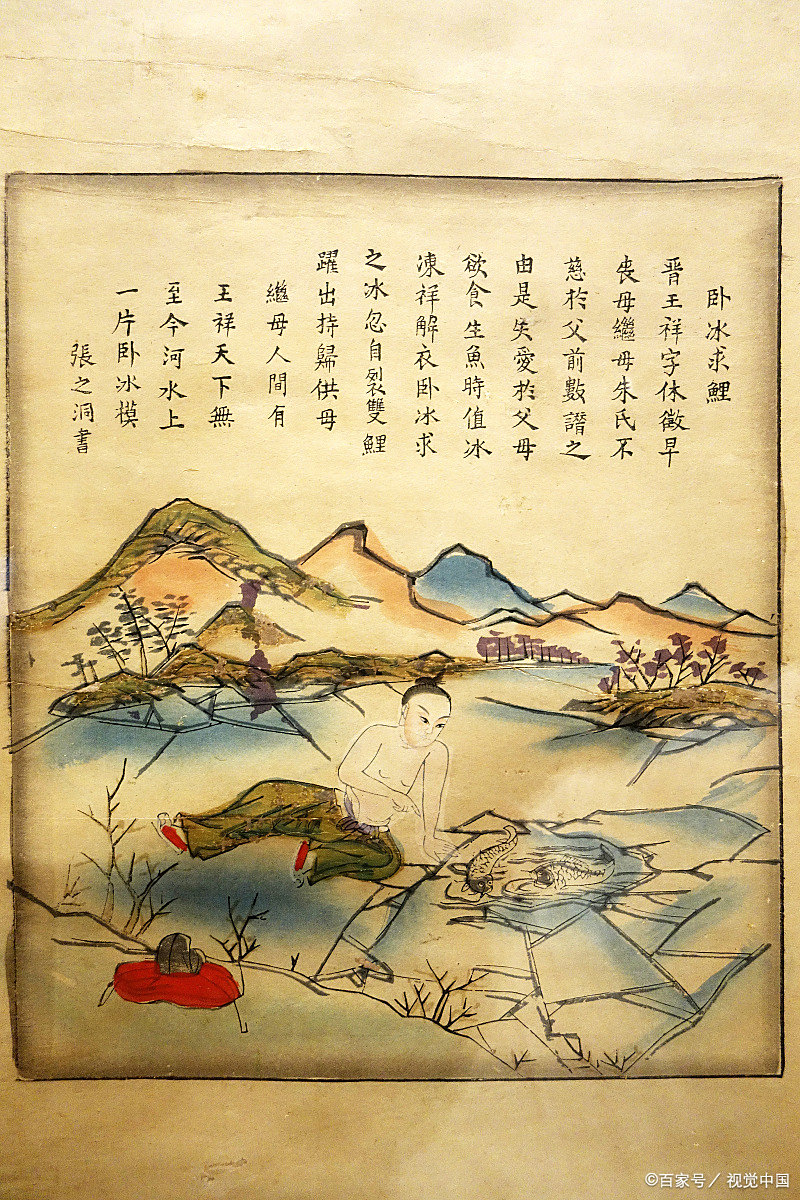 卧冰求鯉
晋王祥字休徵早
喪母繼母朱氏不
慈於父前數譖之
由是失愛於父母
欲食生魚時值冰
凍祥解衣卧冰求
之冰忽自裂雙鯉
躍出持歸供母
繼母人間有
王祥天下無
至今河水上
一片卧冰模
張之洞書
©百家号／视觉中国